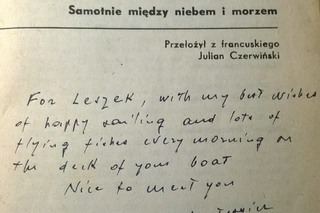 Samotnie między niebem i morzem
Przełożył z francuskiego
Julian Czerwiński
For Leszek, with my best wishes
of happy sailing and lots of
flying fishes every morning on
the deck of your boat
Nice to meet you